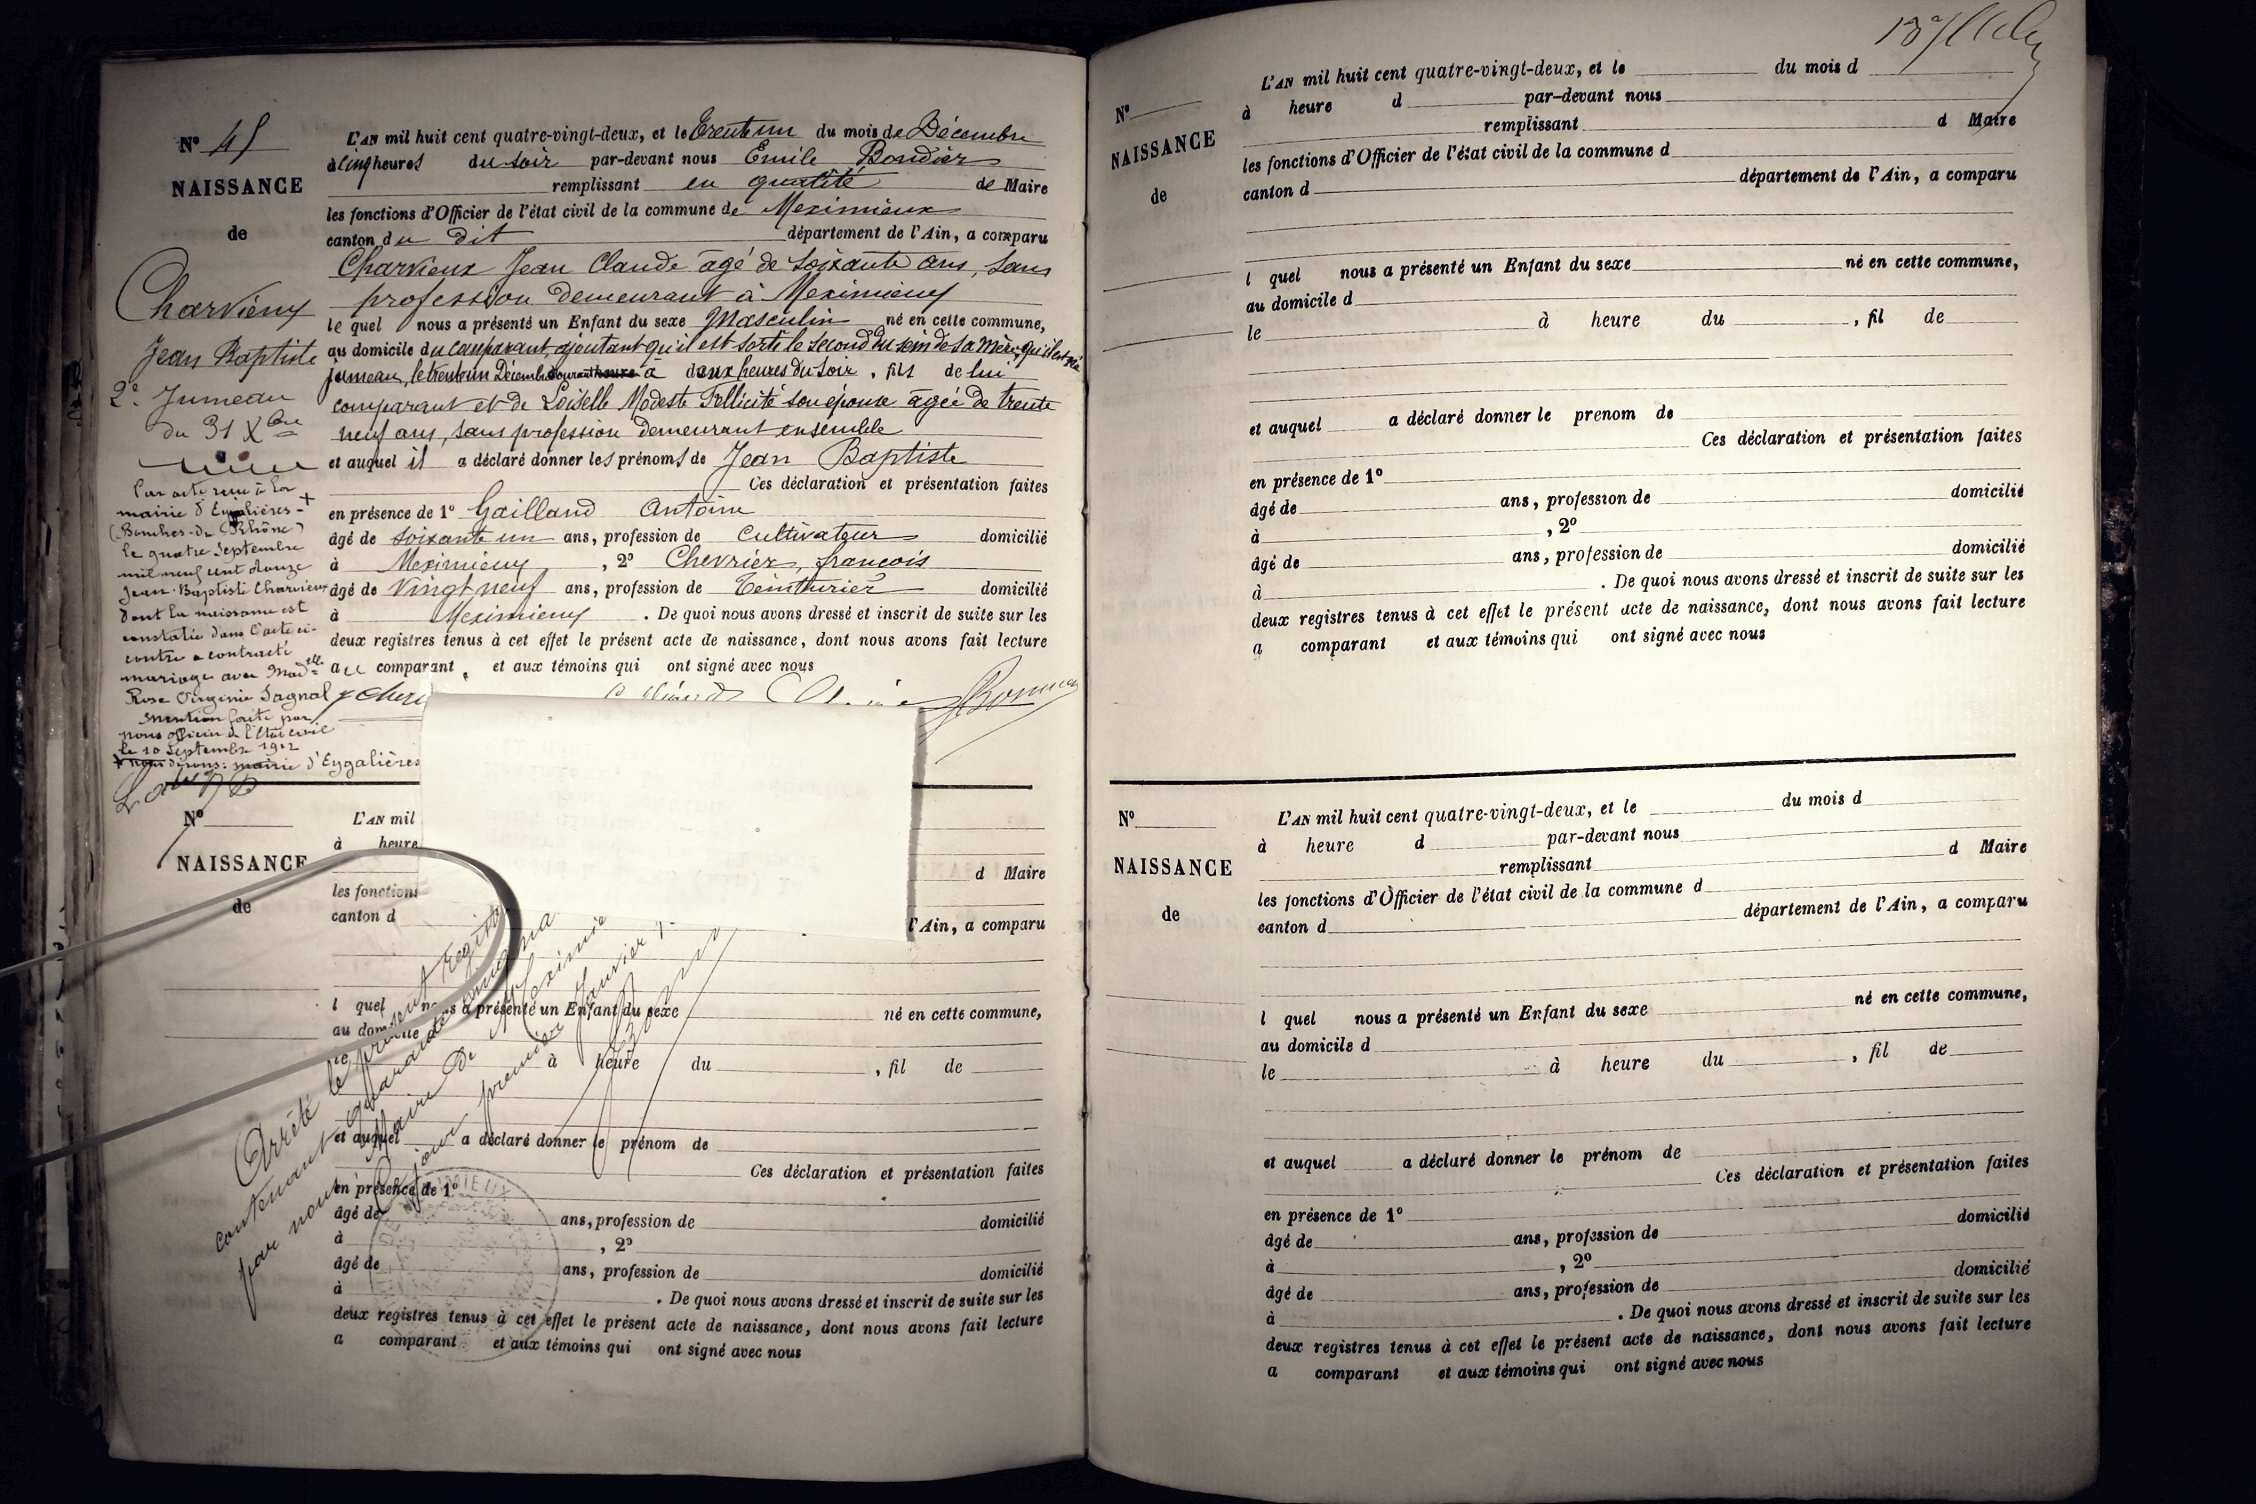 Nº 45
NAISSANCE
de
Charvieux
Jean Baptiste
2e Jumeau
du 31 Xbre
L'AN mil huit cent quatre-vingt-deux, et le Trente un du mois de Décembre
à cinq heures du soir par-devant nous Emile Bondier
remplissant en qualité de Maire
les fonctions d'Officier de l'état civil de la commune de Meximieux
canton du dit département de l'Ain, a comparu
Charvieux Jean Claude âgé de soixante ans, sans
profession demeurant à Meximieux
le quel nous a présenté un Enfant du sexe Masculin né en cette commune,
au domicile du comparant, ajoutant qu'il est sorti le second du sein de sa mère, qu'il est né
jumeau, le trente un Décembre courant à deux heures du soir, fils de lui
comparant et de Loiselle Modeste Fellicité son épouse âgée de trente
neuf ans, sans profession demeurant ensemble
et auquel il a déclaré donner les prénoms de Jean Baptiste
Ces déclaration et présentation faites
en présence de 1º Gailland Antoine
âgé de soixante un ans, profession de Cultivateur domicilié
à Meximieux, 2º Chevrier, françois
âgé de Vingt neuf ans, profession de Teinturier domicilié
à Meximieux. De quoi nous avons dressé et inscrit de suite sur les
deux registres tenus à cet effet le présent acte de naissance, dont nous avons fait lecture
au comparant, et aux témoins qui ont signé avec nous
Par acte reçu à la
mairie d'Eygalières +
(Bouches-du-Rhône)
le quatre Septembre
mil neuf cent douze
Jean-Baptiste Charvieux
dont la naissance est
constatée dans l'acte ci-
contre a contracté
mariage avec Madelle
Rose Virginie Sagnal
Mention faite par
nous officier de l'état civil
le 10 Septembre 1912
disons: mairie d'Eygalières
Nº
NAISSANCE
de
L'AN mil
à heure
d Maire
les fonctions
canton d l'Ain, a comparu
l quel nous a présenté un Enfant du sexe né en cette commune,
au domicile
le à heure du , fil de
et auquel a déclaré donner le prénom de
Ces déclaration et présentation faites
en présence de 1º
âgé de ans, profession de domicilié
à , 2º
âgé de ans, profession de domicilié
à . De quoi nous avons dressé et inscrit de suite sur les
deux registres tenus à cet effet le présent acte de naissance, dont nous avons fait lecture
a comparant et aux témoins qui ont signé avec nous
Arrêté le présent Regist
contenant quarante cinq na
par nous Maire de Meximie
Ce jour premier Janvier
Nº
NAISSANCE
de
L'AN mil huit cent quatre-vingt-deux, et le du mois d
à heure d par-devant nous
remplissant d Maire
les fonctions d'Officier de l'état civil de la commune d
canton d département de l'Ain, a comparu
l quel nous a présenté un Enfant du sexe né en cette commune,
au domicile d
le à heure du , fil de
et auquel a déclaré donner le prenom de
Ces déclaration et présentation faites
en présence de 1º
âgé de ans, profession de domicilié
à , 2º
âgé de ans, profession de domicilié
à . De quoi nous avons dressé et inscrit de suite sur les
deux registres tenus à cet effet le présent acte de naissance, dont nous avons fait lecture
a comparant et aux témoins qui ont signé avec nous
Nº
NAISSANCE
de
L'AN mil huit cent quatre-vingt-deux, et le du mois d
à heure d par-devant nous
remplissant d Maire
les fonctions d'Officier de l'état civil de la commune d
canton d département de l'Ain, a comparu
l quel nous a présenté un Enfant du sexe né en cette commune,
au domicile d
le à heure du , fil de
et auquel a déclaré donner le prénom de
Ces déclaration et présentation faites
en présence de 1º
âgé de ans, profession de domicilié
à , 2º
âgé de ans, profession de domicilié
à . De quoi nous avons dressé et inscrit de suite sur les
deux registres tenus à cet effet le présent acte de naissance, dont nous avons fait lecture
a comparant et aux témoins qui ont signé avec nous